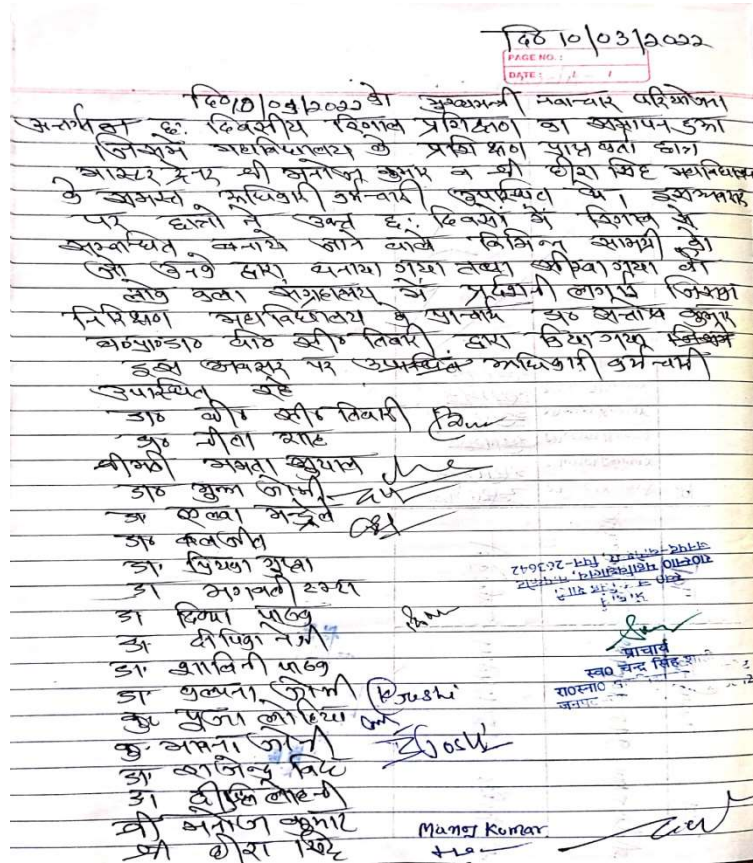 दि० 10/03/2022
PAGE NO.:
DATE:
दि० 10/03/2022 को मुख्यमन्त्री नवाचार परियोजना
अन्तर्गत छ: दिवसीय रिंगाल प्रशिक्षण का समापन हुआ
जिसमें महाविद्यालय के प्रशिक्षण प्राप्तकर्ता छात्र
मास्टर ट्रेनर श्री मनोज कुमार व श्री हीरा सिंह महाविद्यालय
के समस्त अधिकारी कर्मचारी उपस्थित थे। इस अवसर
पर छात्रों ने उक्त छ: दिवसों में रिंगाल से
सम्बन्धित बनाये जाने वाले विभिन्न सामग्री को
जो उनके द्वारा बनाया गया तथा सीखा गया को
लोक कला संग्रहालय में प्रदर्शनी लगाई जिसका
निरिक्षण महाविद्यालय के प्राचार्य डा० सन्तोष कुमार
डा० सी० तिवारी द्वारा किया गया
इस अवसर पर उपस्थित अधिकारी कर्मचारी
उपस्थित रहे
डा० सी० तिवारी
डा० नीता शाह
श्रीमती ममता सुयाल
डा० जोशी
डा०
डा० कलजीत
डा० प्रियंका
डा भगवती
डा दिव्या पाण्डे
डा दीपिका नेगी
डा० शालिनी पाठक
डा० कल्पना जोशी KJoshi
कु० पूजा लोहिया
कु० भावना जोशी BJoshi
डा० राजेन्द्र सिंह
डा दीप्ति लोहनी
श्री मनोज कुमार Manoj Kumar
श्री हीरा सिंह
पिन-263642
प्राचार्य
स्व० चन्द्र सिंह
रा०स्ना०
जनपद